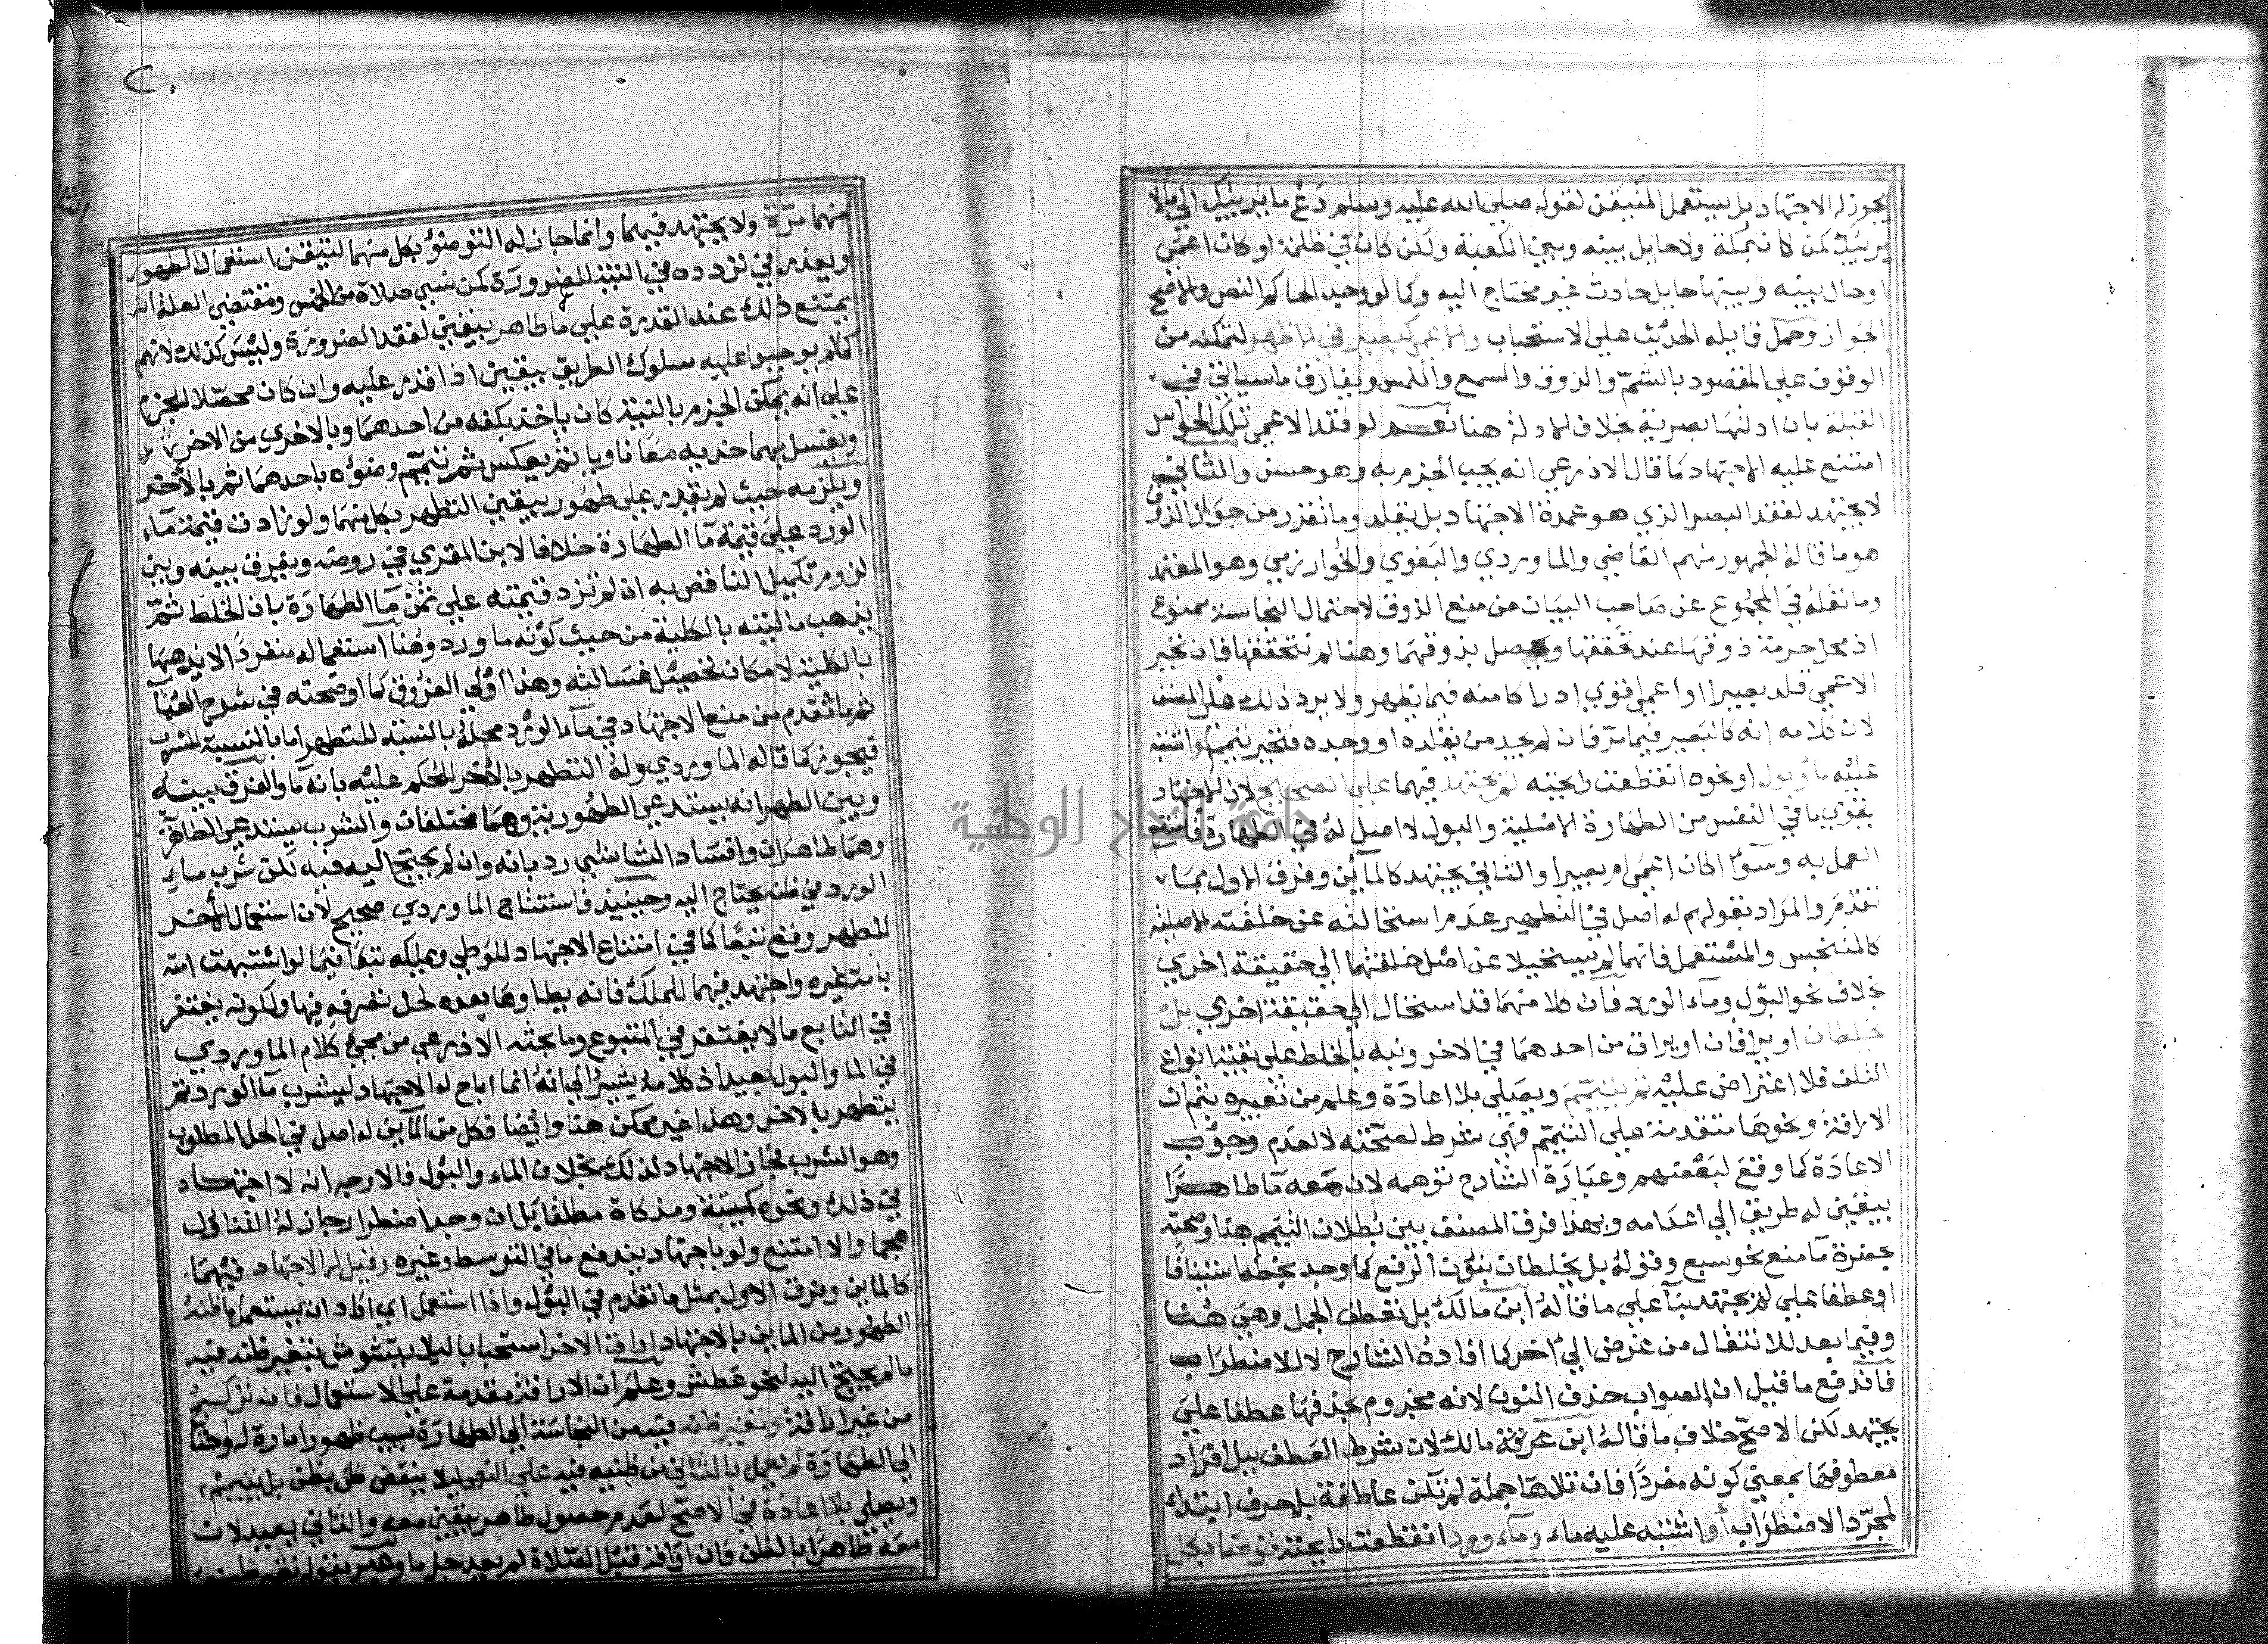 يجوز له الاجتهاد بل يستعمل المتيقن لقوله صلى الله عليه وسلم دع ما يريبك الى ما لا
يريبك كمن كان بمكة ولا حايل بينه وبين الكعبة ولكن كان في ظلمة او كان اعمى
او حال بينه وبينها حايل حادث غير محتاج اليه وكما لو وجد الحاكم النص والاصح
الجواز وحمل قايله الحديث على الاستحباب والاعمى كبصير في الاظهر لتمكنه من
الوقوف على المقصود بالشم والذوق والسمع واللمس ويفارق ما سياتي في
القبلة بان ادلتها بصرية بخلاف الادلة هنا نعم لو فقد الاعمى تلك الحواس
امتنع عليه الاجتهاد كما قال الاذرعي انه يجب الجزم به وهو حسن والثاني
لا يجتهد لفقد البصر الذي هو عمدة الاجتهاد بل يقلد وما تقرر من جواز الذوق
هو ما قاله الجمهور منهم القاضي والماوردي والبغوي والخوارزمي وهو المعتمد
وما نقله في المجموع عن صاحب البيان من منع الذوق لاحتمال النجاسة ممنوع
اذ محل حرمة ذوقها عند تحققها ويحصل بذوقهما وهنا لم نتحققها فان تحير
الاعمى قلد بصيرا او اعمى اقوى ادراكا منه فيما يظهر ولا يرد ذلك على المصنف
لان كلامه انه كالبصير فيما مر فان لم يجد من يقلده او وجده فتحير تيمم ولو اشتبه
عليه ماء وبول او نحوه انقطعت رايحته لم يجتهد فيهما على الصحيح لان الاجتهاد
يقوي ما في النفس من الطهارة الاصلية والبول لا اصل له في الطهارة فامتنع
العمل به وسوآ اكان اعمى ام بصيرا والثاني يجتهد كالمآئين وفرق الاول بما
تقدم والمراد بقولهم له اصل في التطهير عدم استحالته عن خلقته الاصلية
كالمتنجس والمستعمل فانهما لم يستحيلا عن اصل خلقتهما الى حقيقة اخرى
بخلاف نحو البول ومآء الورد فان كلا منهما قد استحال الى حقيقة اخرى بل
يخلطان او يراقان او يراق من احدهما في الاخر ونبه بالخلط على بقية انواع
التلف فلا اعتراض عليه ثم يتيمم ويصلي بلا اعادة وعلم من تعبيره بثم ان
الاراقة ونحوها متقدمة على التيمم فهي شرط لصحته لا لعدم وجوب
الاعادة كما وقع لبعضهم وعبارة الشارح توهمه لان معه مآ طاهرا
بيقين له طريق الى اعدامه وبهذا فرق المصنف بين بطلان التيمم هنا وصحته
بحضرة مآ منع نحو سبع وقوله بل يخلطان بنون الرفع كما وجد بخطه استينافا
او عطفا على لم يجتهد بنآ على ما قاله ابن مالك بل تعطف الجمل وهي هنا
وفيما بعد للانتقال من غرض الى آخر كما افاده الشارح لا للاضطراب
فاندفع ما قيل ان الصواب حذف النون لانه مجزوم بحذفها عطفا على
يجتهد لكن الاصح خلاف ما قاله ابن مالك لان شرط العطف ببل افراد
معطوفها بمعنى كونه مفردا فان تلاها جملة لم تكن عاطفة بل حرف ابتداء
لمجرد الاضطراب او اشتبه عليه ماء ومآء ورد انقطعت رايحته توضا بكل
منهما مرة ولا يجتهد فيهما وانما جاز له التوضؤ بكل منهما لتيقن استعمال الطهور
ويعذر في تردده في النية للضرورة كمن نسي صلاة من الخمس ومقتضى العلة انه
يمتنع ذلك عند القدرة على ما طاهر بيقين لفقد الضرورة وليس كذلك لانهم
كما لم يوجبوا عليه سلوك الطريق بيقين اذا قدر عليه وان كان محصلا للجزم
على انه يمكن الجزم بالنية كان ياخذ بكفه من احدهما وبالاخرى من الاخر
ويغسل بهما خديه معا ناويا ثم يعكس ثم يتمم وضوءه باحدهما ثم بالآخر
ويلزمه حيث لم يقدر على طهور بيقين التطهر بكل منهما ولو زادت قيمة مآء
الورد على قيمة مآ الطهارة خلافا لابن المقري في روضه ويفرق بينه وبين
لزوم تكميل الناقص به ان لم تزد قيمته على ثمن مآ الطهارة بان الخلط ثم
يذهب ماليته بالكلية من حيث كونه ما ورد وهنا استعماله منفردا لا يذهبها
بالكلية لامكان تحصيل غسالته وهذا اولى الفروق كما اوضحته في شرح العباب
ثم ما تقدم من منع الاجتهاد في مآء الورد محله بالنسبة للتطهر اما بالنسبة للشرب
فيجوز كما قاله الماوردي وله التطهر بالاخر للحكم عليه بانه مآ والفرق بينه
وبين الطهر انه يستدعي الطهورية وهما مختلفان والشرب يستدعي الطاهرية
وهما طاهران وافساد الشاشي رد بانه وان لم يحتج اليه فيه لكن شرب ماء
الورد في ظنه يحتاج اليه وحينيذ فاستنتاج الماوردي صحيح لان استعمال الآخر
للطهر وقع تبعا كما في امتناع الاجتهاد للوطي ويملكه تبعا فيما لو اشتبهت امته
بامة غيره واجتهد فيهما للملك فانه يطاوها بعده لحل تصرفه فيها ولكونه يغتفر
في التابع ما لا يغتفر في المتبوع وما بحثه الاذرعي من مجئ كلام الماوردي
في الما والبول بعيد اذ كلامه يشير الى انه انما اباح له الاجتهاد ليشرب مآ الورد ثم
يتطهر بالاخر وهذا غير ممكن هنا وايضا فكل من المآين له اصل في الحل المطلوب
وهو الشرب فجاز الاجتهاد لذلك بخلاف الماء والبول فالاوجه انه لا اجتهاد
في ذلك ونحوه كميتة ومذكاة مطلقا بل ان وجد اضطرار جاز له التناول
هجما والا امتنع ولو باجتهاد يندفع ما في التوسط وغيره وقيل له الاجتهاد فيهما
كالماين وفرق الاول بمثل ما تقدم في البول واذا استعمل اي اراد ان يستعمل ما ظنه
الطهور من الماين بالاجتهاد اراق الاخر استحبابا ليلا يتشوش بتغير ظنه فيه
مالم يحتج اليه لنحو عطش وعلم ان الاراقة مقدمة على الاستعمال فان تركه
من غير اراقة وتغير ظنه فيه من النجاسة الى الطهارة بسبب ظهور امارة له واحتاج
الى الطهارة لم يعمل بالثاني من ظنيه فيه على النص ليلا ينقض ظن بظن بل يتيمم
ويصلي بلا اعادة في الاصح لعدم حصول طاهر بيقين معه والثاني يعيد لان
معه طاهرا بالظن فان اراقه قبل الصلاة لم يعد جزما وعبر بقوله تغير ظنه